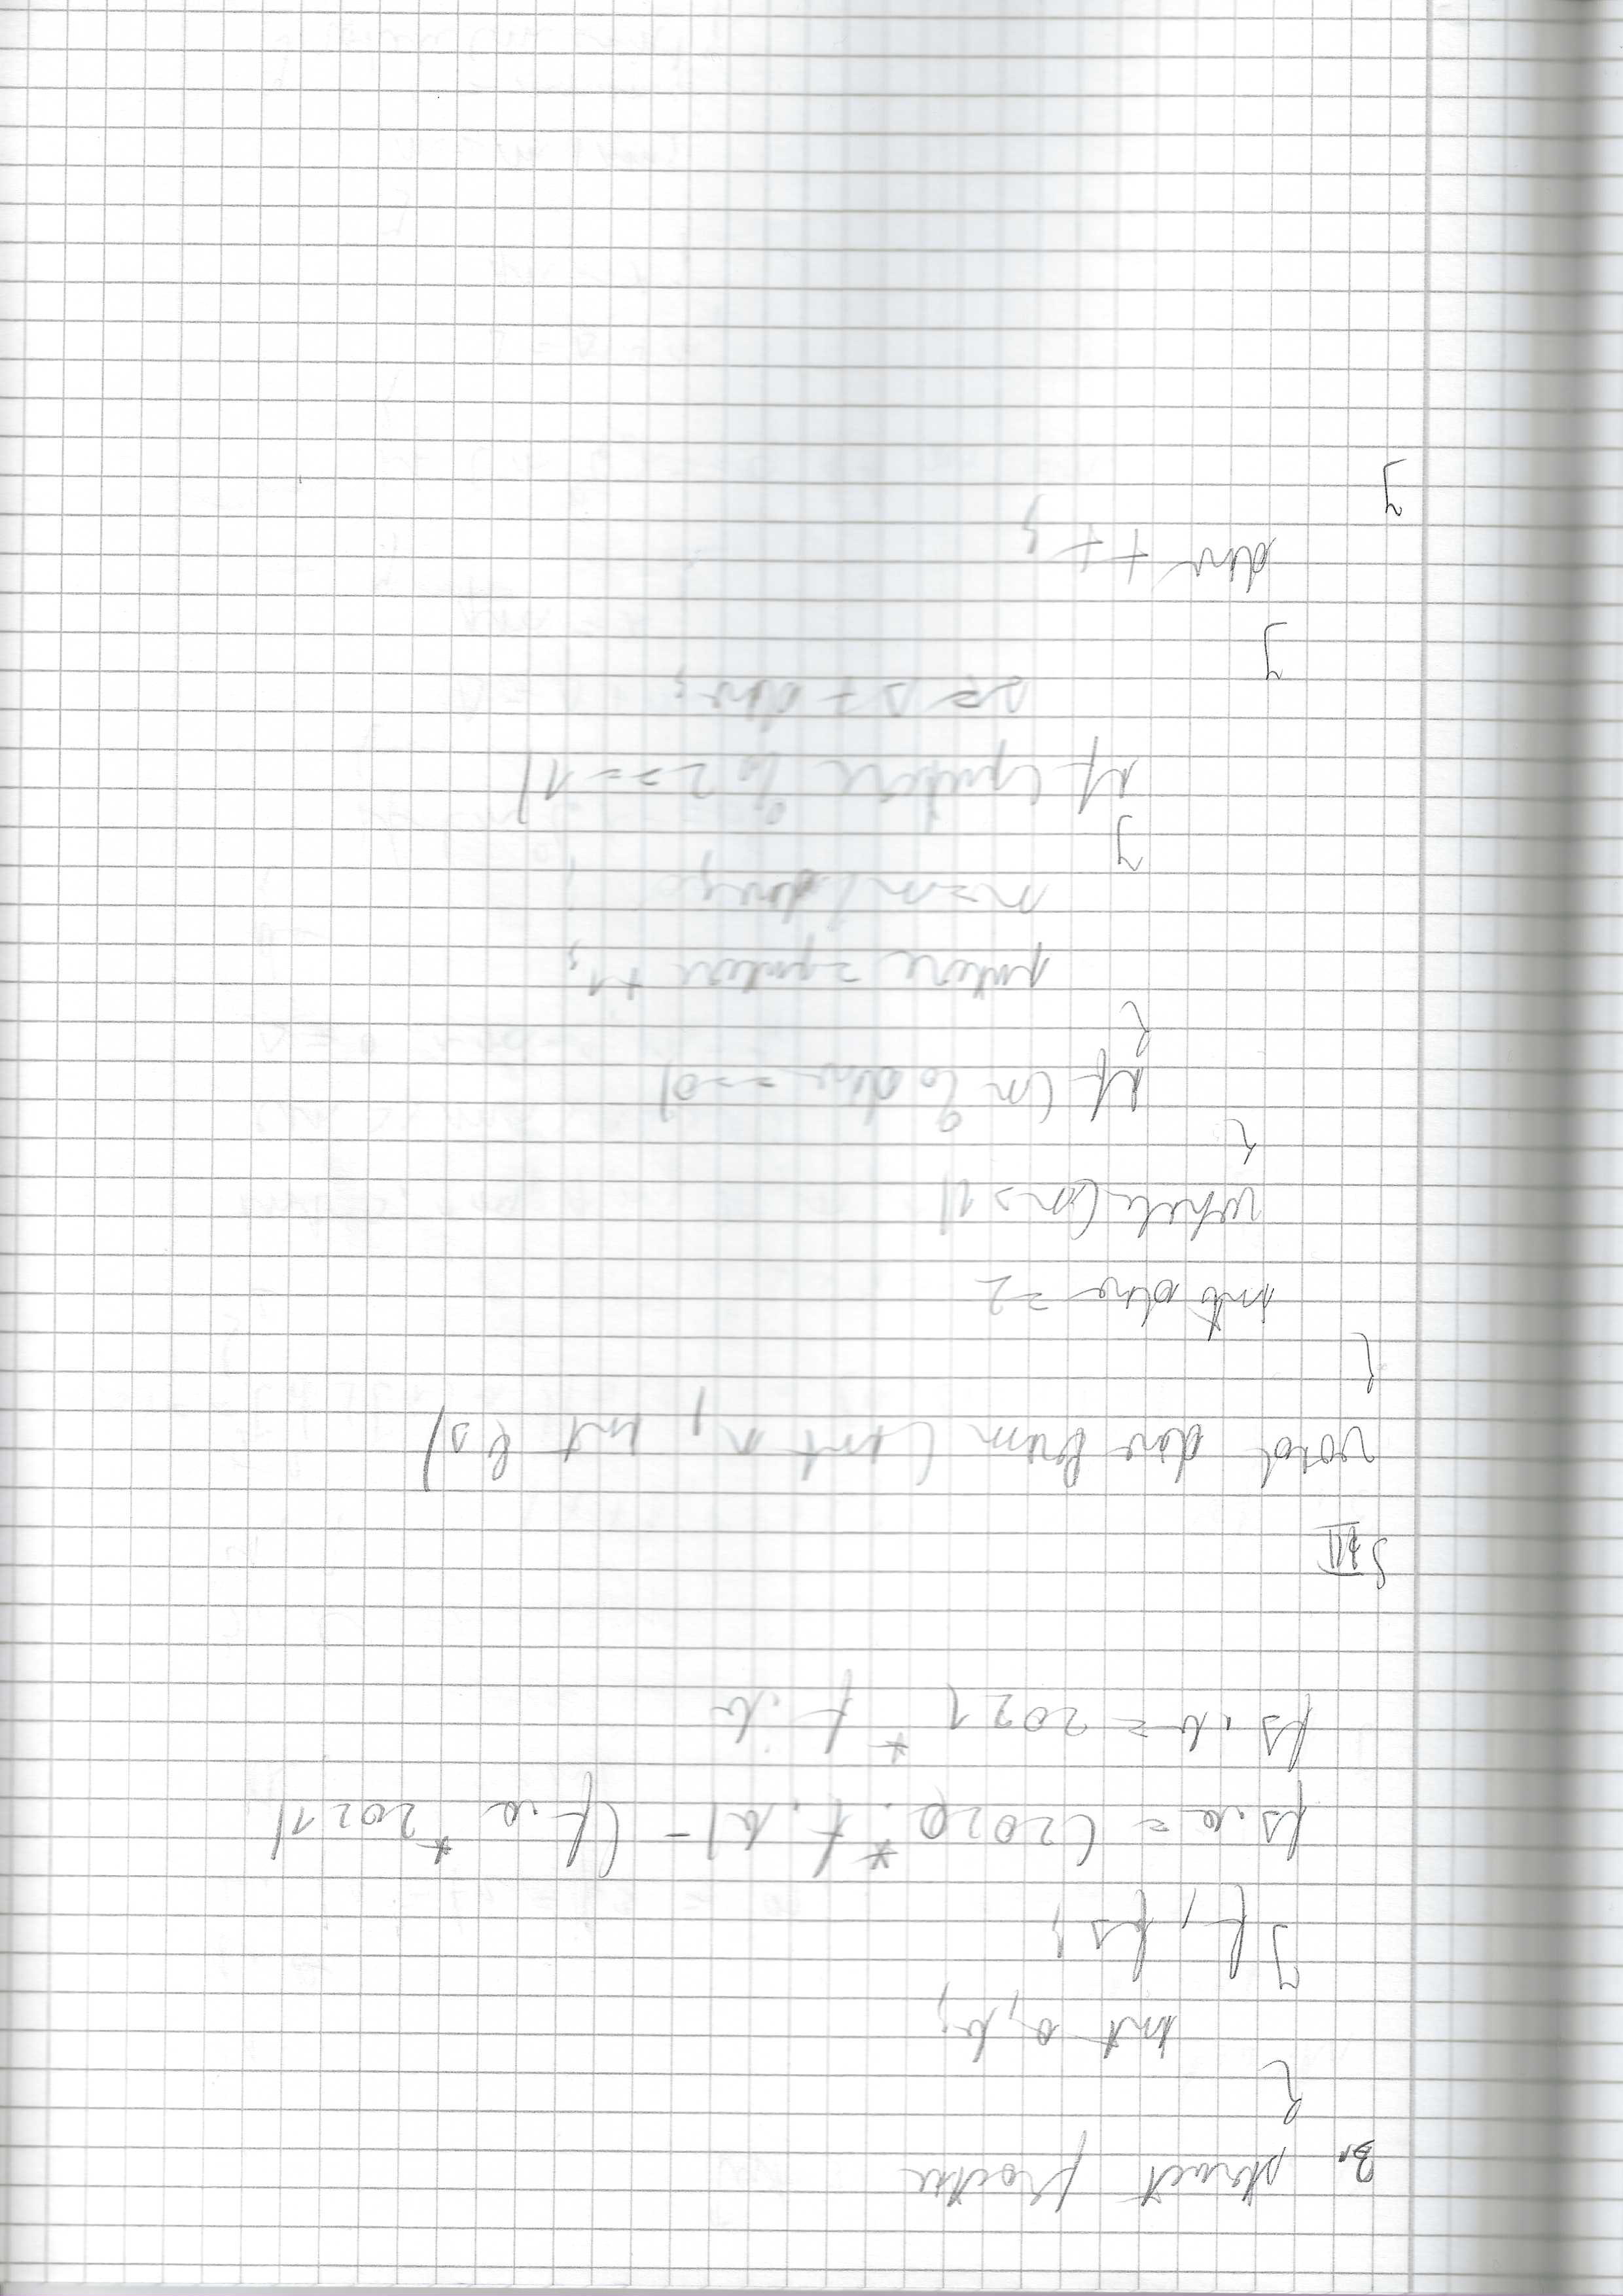 3. struct fractie
{
int a, b;
} f, fs;
fs.a = (2020 * f.b) - (f.a * 2021)
fs.b = 2021 * f.b
SIII
void div prim (int n, int &s)
{
int div = 2
while (n > 1)
{
if (n % div == 0)
{
putere = putere + 1;
n = n / div;
}
if (putere % 2 == 1)
s = s + div;
}
div ++;
}